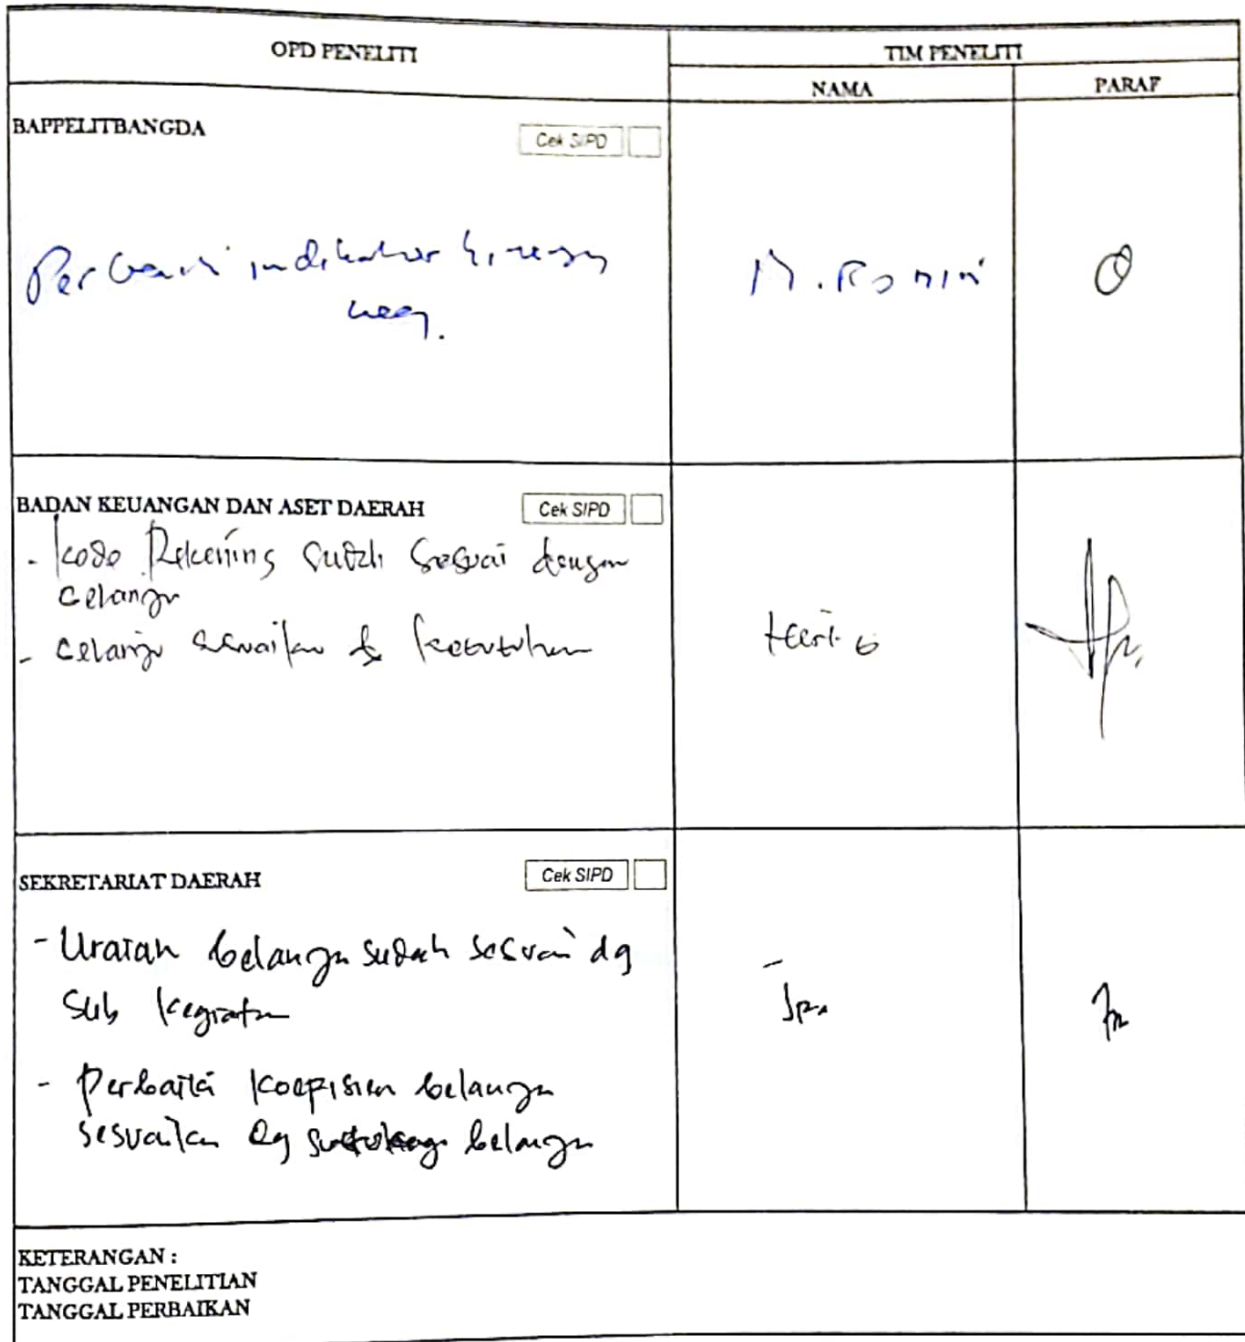 OPD PENELITI
TIM PENELITI
NAMA
PARAF
BAPPELITBANGDA
Cek SIPD
Perbaiki indikator kinerja
keg.
M. Romin
BADAN KEUANGAN DAN ASET DAERAH
Cek SIPD
- Kode Rekening sudah sesuai dengan
belanja
- belanja sesuaikan dg kebutuhan
SEKRETARIAT DAERAH
Cek SIPD
- Uraian belanja sudah sesuai dg
Sub kegiatan
- Perbaiki koepisien belanja
sesuaikan dg belanja
KETERANGAN :
TANGGAL PENELITIAN
TANGGAL PERBAIKAN